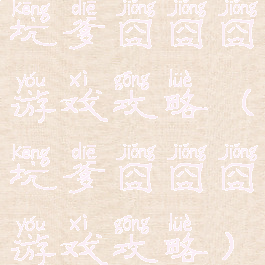 kēng diē jiǒng jiǒng jiǒng
坑爹囧囧囧
yóu xì gōng lüè
游戏攻略（
kēng diē jiǒng jiǒng jiǒng
坑爹囧囧囧
yóu xì gōng lüè
游戏攻略）